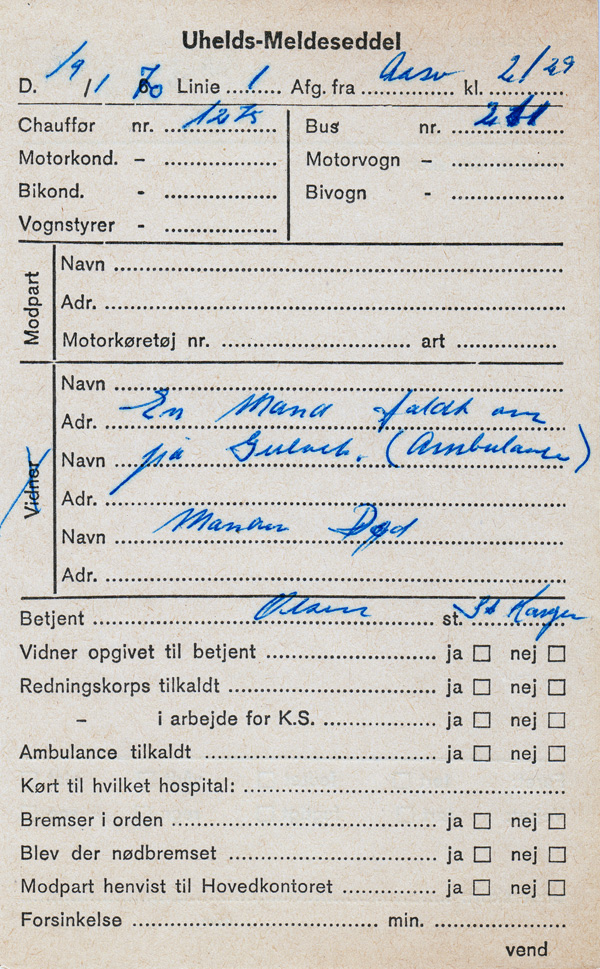 Uhelds-Meldeseddel
D. 19/1 70 Linie 1 Afg. fra kl. 2/29
Chauffør nr. 1275 Bus nr.
Motorkond. – Motorvogn –
Bikond. - Bivogn -
Vognstyrer -
Modpart
Navn
Adr.
Motorkøretøj nr. art
Vidner
Navn
Adr. En Mand faldt om
Navn på Gulvet. (Ambulance)
Adr.
Navn Manden Død
Adr.
Betjent Olsen st.
Vidner opgivet til betjent ja ☐ nej ☐
Redningskorps tilkaldt ja ☐ nej ☐
– i arbejde for K.S. ja ☐ nej ☐
Ambulance tilkaldt ja ☐ nej ☐
Kørt til hvilket hospital:
Bremser i orden ja ☐ nej ☐
Blev der nødbremset ja ☐ nej ☐
Modpart henvist til Hovedkontoret ja ☐ nej ☐
Forsinkelse min.
vend